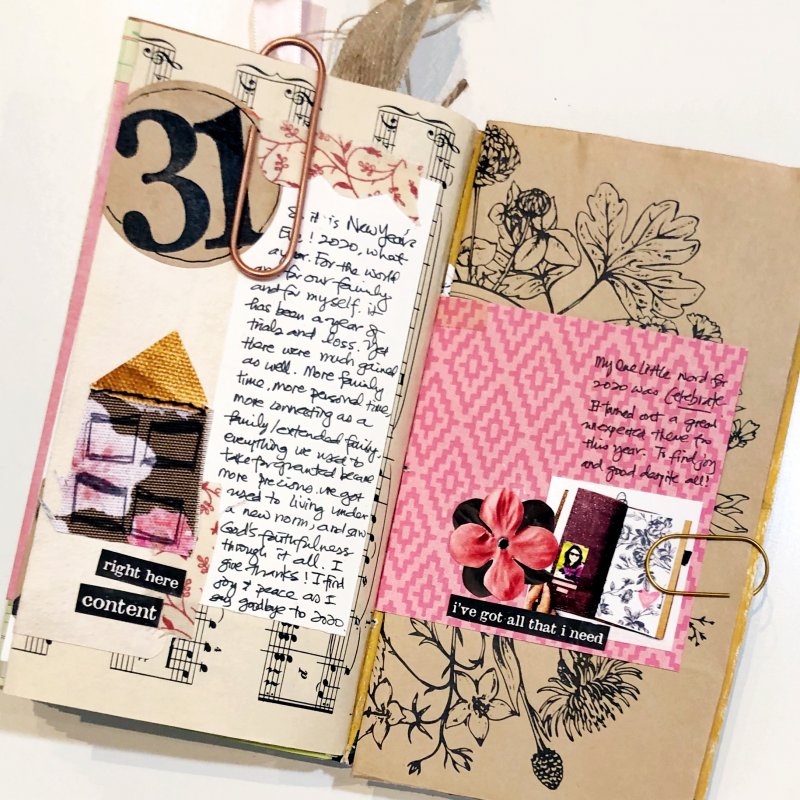 31
So it is New Year's
Eve! 2020, what
a year. For the world
and for our family
and for myself. it
has been a year of
trials and loss. Yet
there were much gained
as well. More family
time, more personal time,
more connecting as a
family/extended family.
everything we used to
take for granted became
more precious. we got
used to living under
a new norm, and saw
God's faithfulness
through it all. I
give thanks! I find
joy & peace as I
say goodbye to 2020
right here
content
My One Little Word for
2020 was Celebrate
It turned out a great
unexpected theme for
this year. To find joy
and good despite all!
i've got all that i need